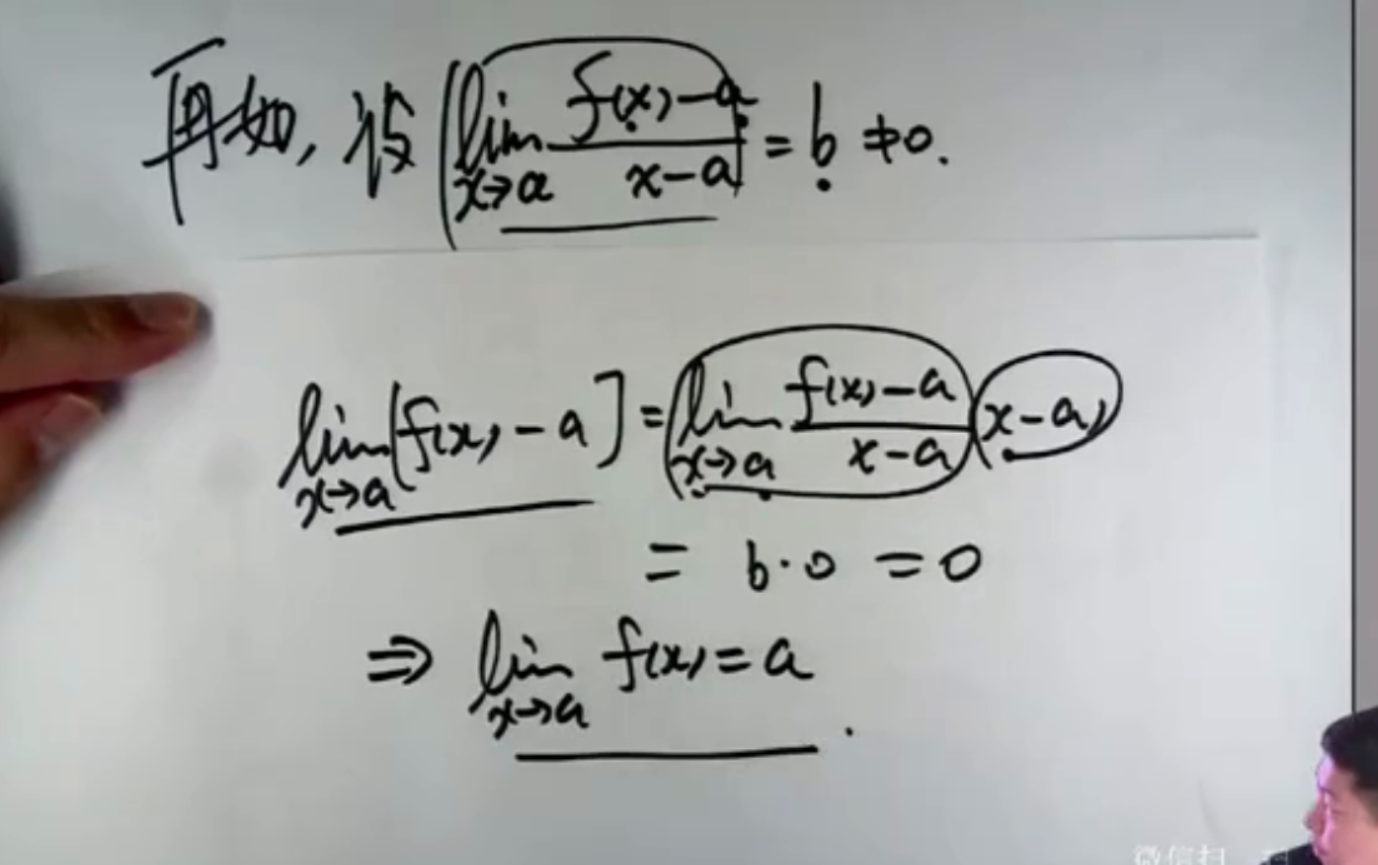 再如, 设 lim x→a (f(x)-a)/(x-a) = b ≠ 0.
lim x→a [f(x)-a] = lim x→a (f(x)-a)/(x-a) (x-a)
= b·0 = 0
⇒ lim x→a f(x) = a.
微信扫